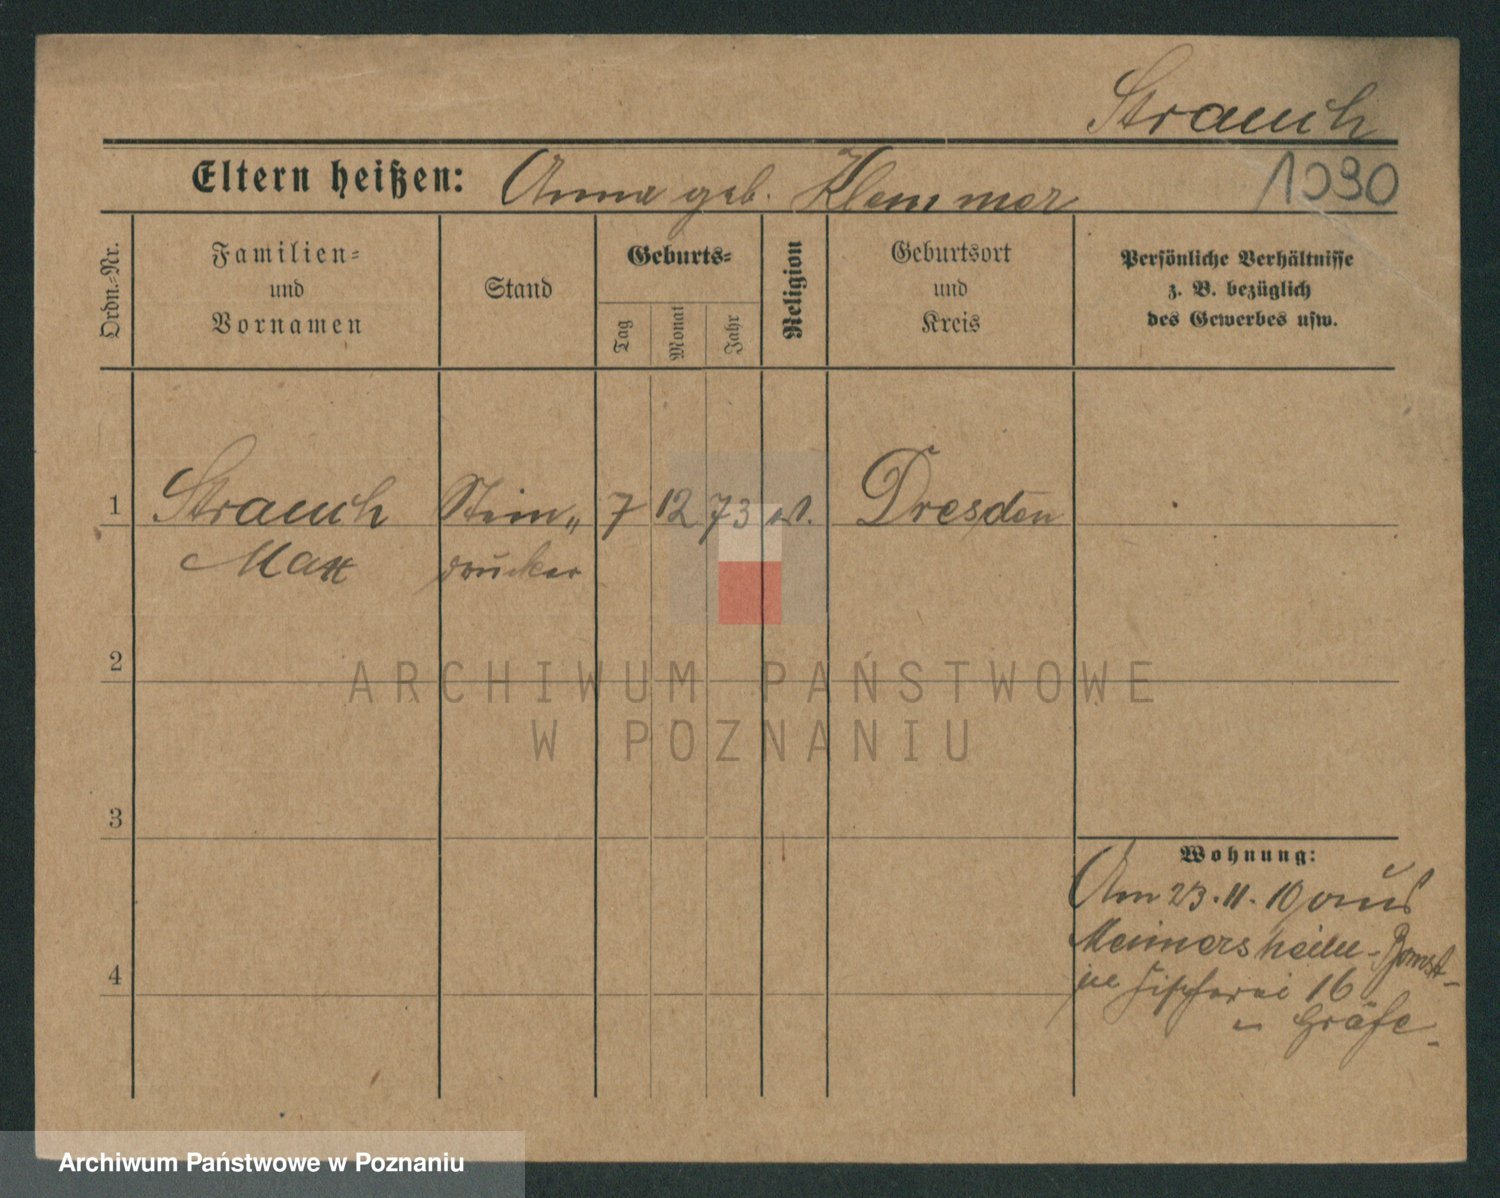 Strauch
Eltern heißen: Anna geb. Klemmer
1030
Ordn.-Nr.
Familien-
und
Vornamen
Stand
Geburts-
Tag
Monat
Jahr
Religion
Geburtsort
und
Kreis
Persönliche Verhältnisse
z. B. bezüglich
des Gewerbes usw.
1 Strauch Stein„ 7 12 73 ev. Dresden
Max drucker
2
ARCHIWUM PAŃSTWOWE
W POZNANIU
3
Wohnung:
Am 23.11.10 aus
4
Fischerei 16
Gräfe
Archiwum Państwowe w Poznaniu